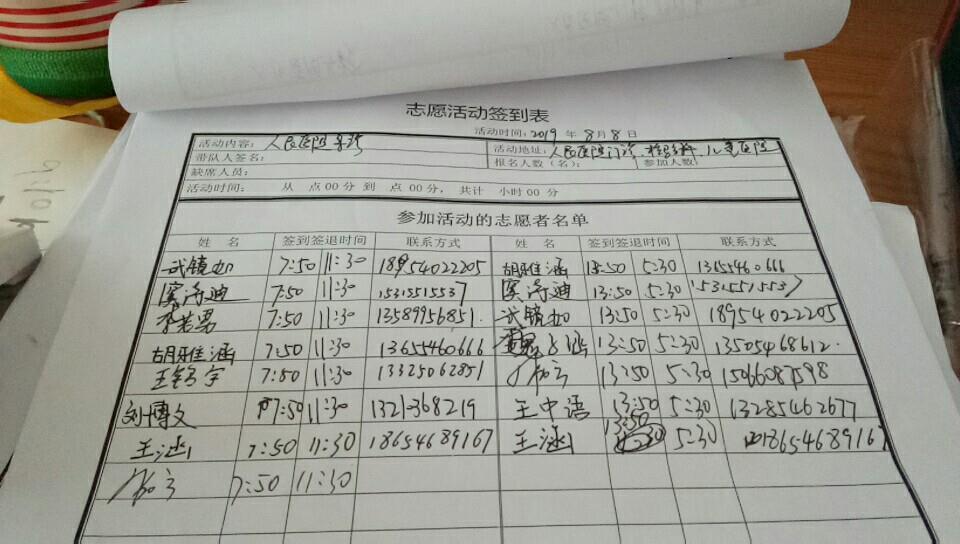 志愿活动签到表
活动时间: 2019 年 8 月 8 日
活动内容: 人民医院导诊 活动地址: 人民医院门诊、 儿童医院
带队人签名: 报名人数(名): 参加人数:
缺席人员:
活动时间: 从 点00分 到 点00分, 共计 小时00分
参加活动的志愿者名单
姓 名 签到签退时间 联系方式 姓 名 签到签退时间 联系方式
武镜如 7:50 11:30 18954022205 胡雅涵 13:50 5:30 13655460666
7:50 11:30 15315515537 13:50 5:30 15315515537
李若男 7:50 11:30 13589956851. 武镜如 13:50 5:30 18954022205
胡雅涵 7:50 11:30 13655460666 13:50 5:30 13505468612.
7:50 11:30 13325062851 13:50 5:30 15066087598
刘博文 7:50 11:30 1321368219 王中语 13:50 5:30 13285462677
王涵 7:50 11:30 18654689167 王涵 13:50 5:30 18654689167
7:50 11:30